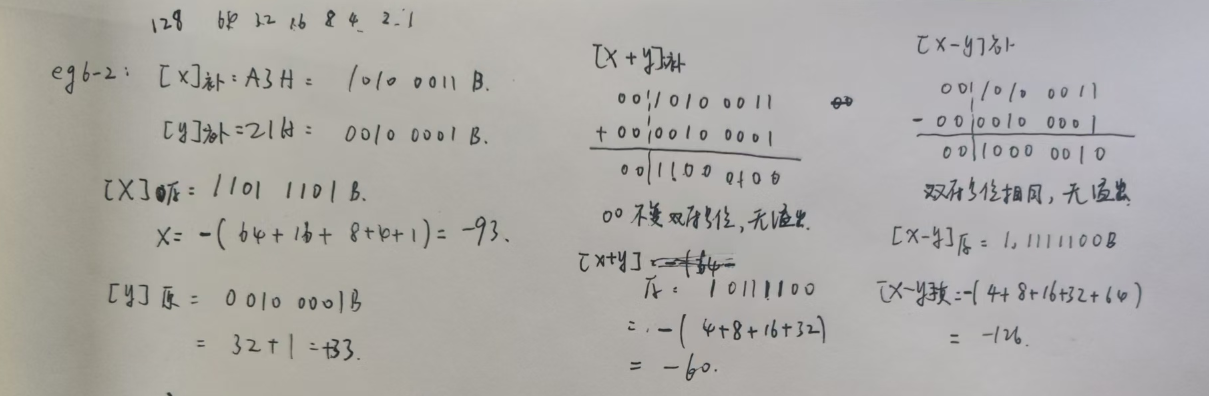 128 64 32 16 8 4 2 1
eg6-2: [X]补: A3H = 1010 0011 B.
[y]补=21H = 0010 0001 B.
[X]原= 1101 1101 B.
X= -(64+16+8+4+1)= -93.
[y]原 = 0010 0001B
= 32+1 =+33.
[X+y]补
00 1010 0011
+ 00 0010 0001
00 1100 0100
00 不是双符号位,无溢出.
[x+y]
原: 10111100
= -( 4+8+16+32)
= -60.
[X-y]补
00 1010 0011
- 00 0010 0001
00 1000 0010
双符号位相同,无溢出.
[X-y]原= 1,1111100B
[X-y]真=-(4+8+16+32+64)
= -126.